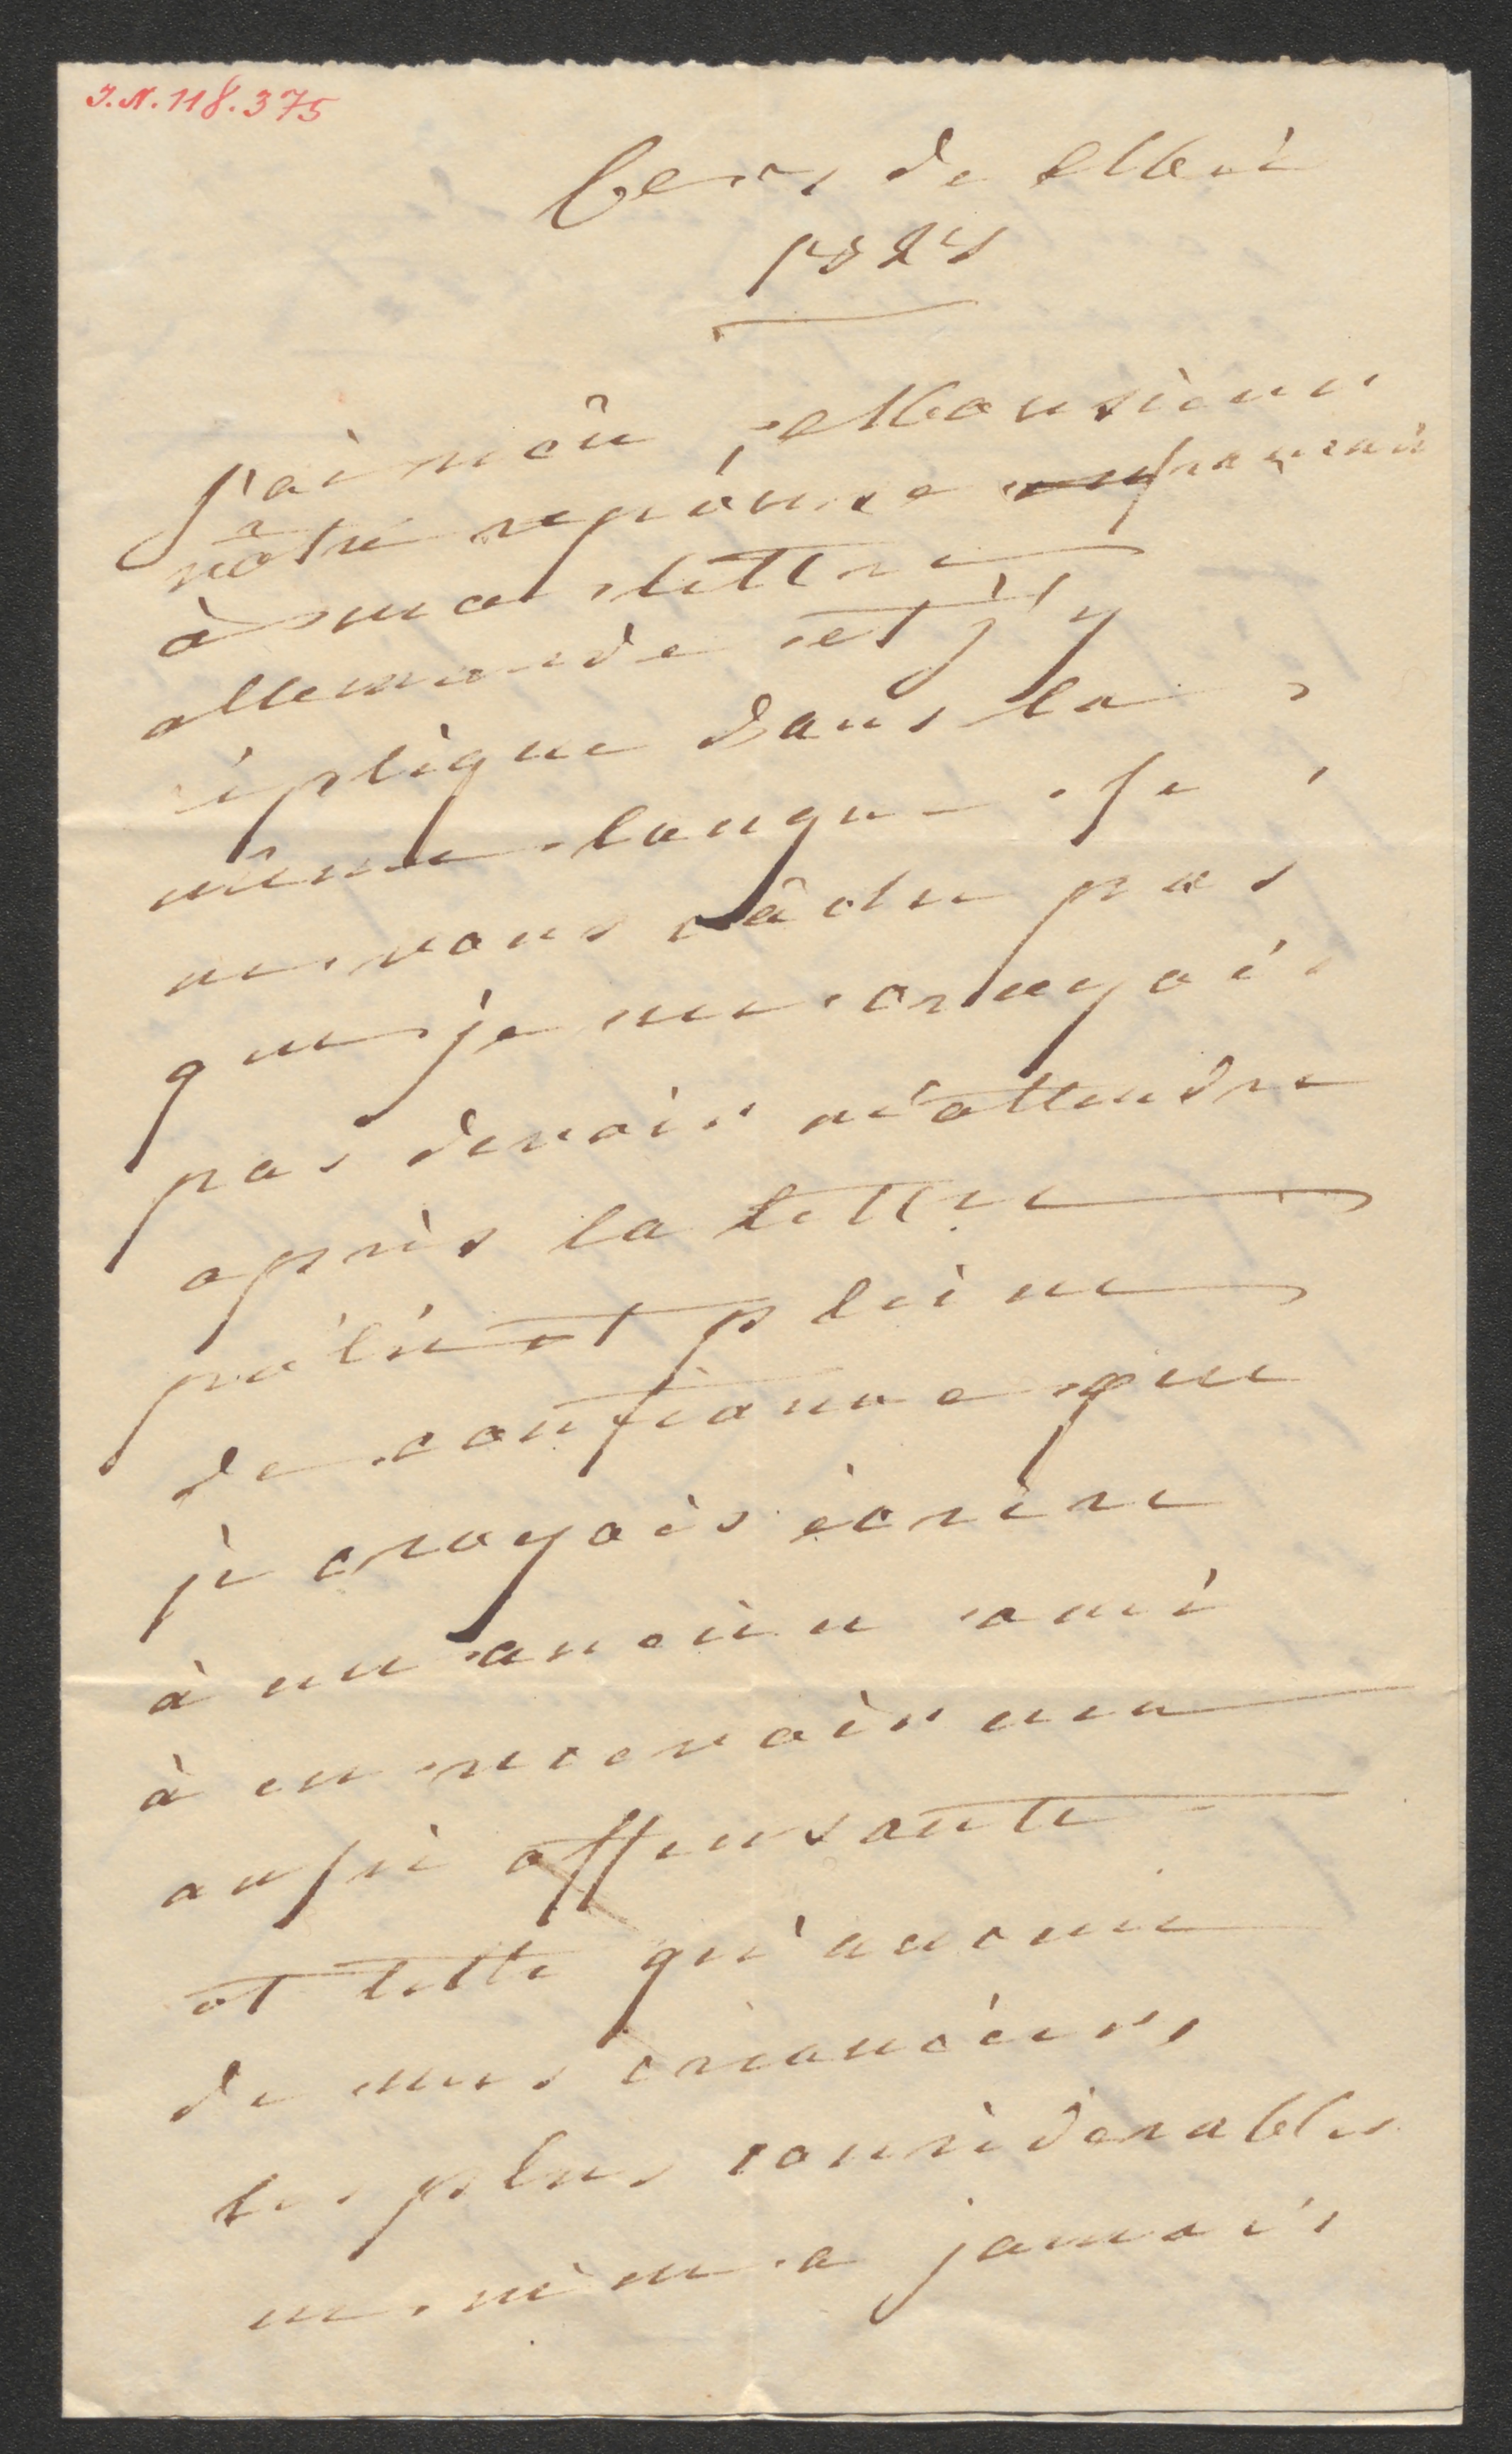 I.N. 118.375
Ce 17 de Mai
J'ai reçu, Monsieur
vôtre reponse françoise
à ma lettre
allemande et j'y
réplique dans la
même langue. Je
ne vous câche pas
que je ne croyais
pas devoir m'attendre
après la lettre
polie et pleine
de confiance que
je croyais écrire
à un ancien ami
à en recevoir une
aussi offensante
et telle qu'aucun
de mes créanciers
les plus considerables
ne m'en a jamais